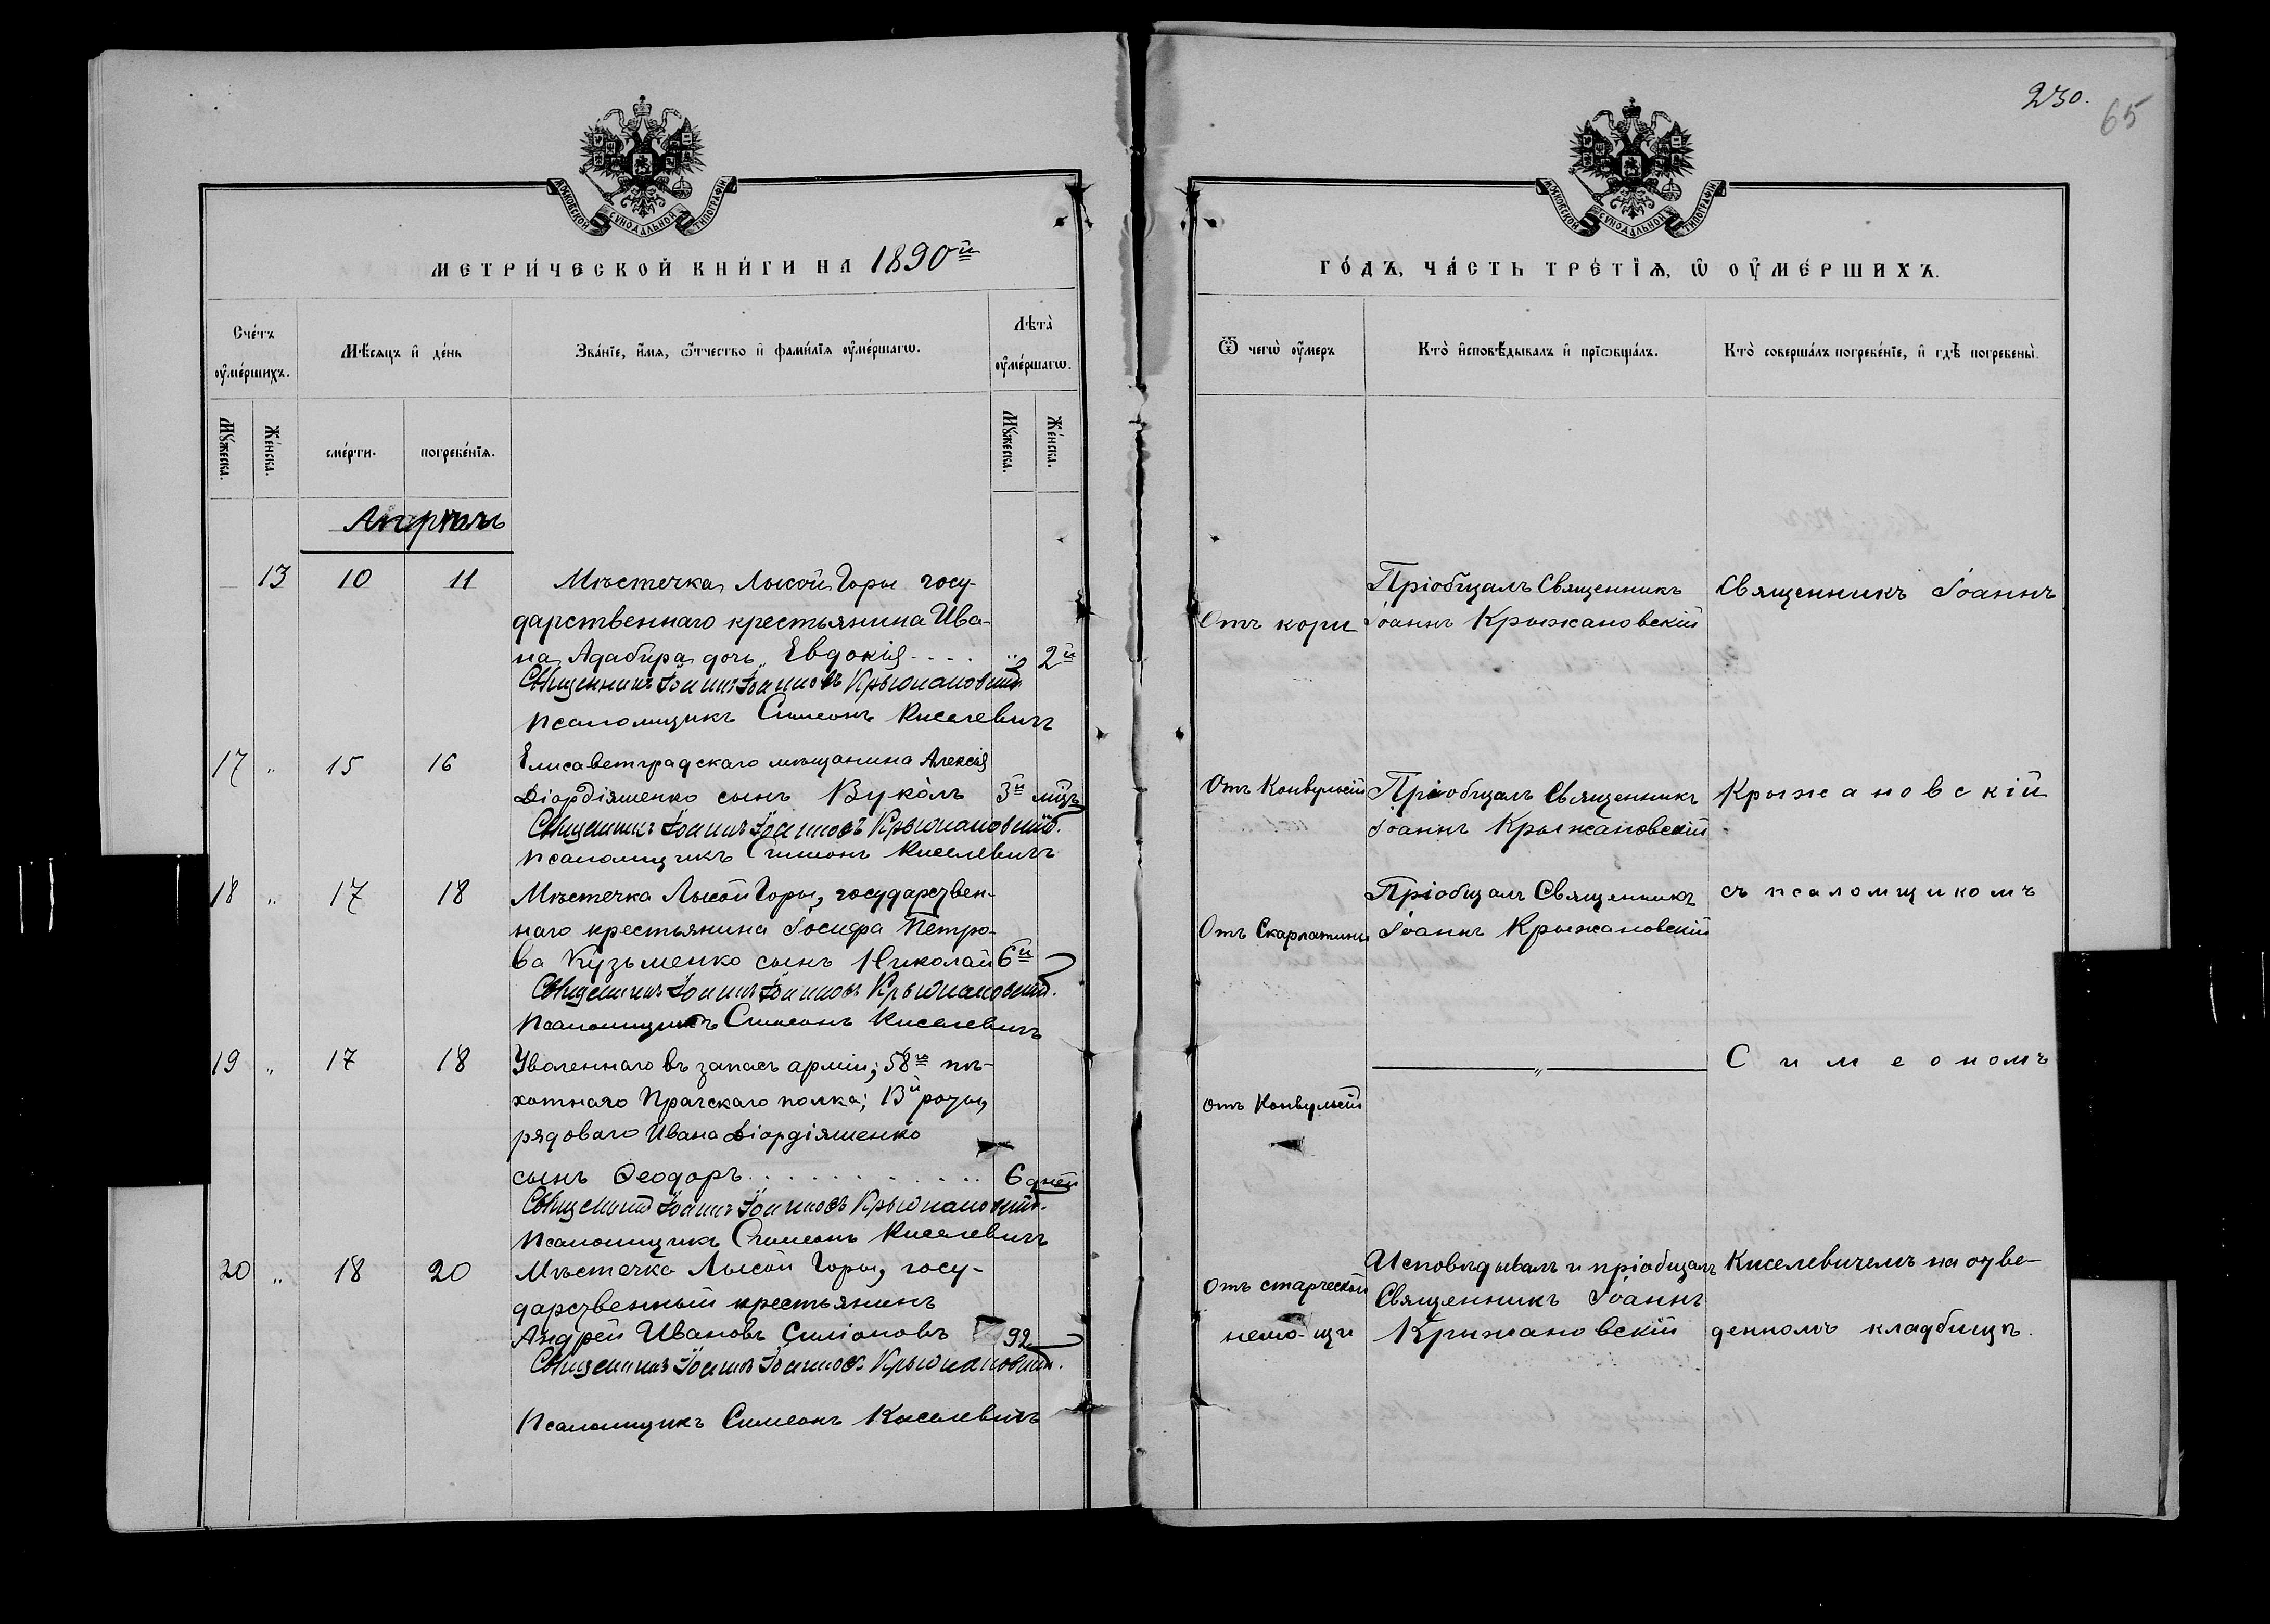 230.
65
МОСКОВСКОЙ СѴНОДАЛЬНОЙ ТИПОГРАФІИ
МОСКОВСКОЙ СѴНОДАЛЬНОЙ ТИПОГРАФІИ
МЕТРИ́ЧЕСКОЙ КНИ́ГИ НА 1890й
ГО́ДЪ, ЧА́СТЬ ТРЕ́ТІѦ, Ѡ ОУ҆МЕ́РШИХЪ.
Сче́тъ оу҆ме́ршихъ.
Мѣ́сяцъ и҆ де́нь
Зва́ніе, и҆́мя, ѻ҆́тчество и҆ фами́лїѧ оу҆ме́ршагѡ.
Лѣта̀ оу҆ме́ршагѡ.
Ѿ чегѡ̀ оу҆́меръ
Кто̀ и҆сповѣ́дывалъ и҆ прїѡбща́лъ.
Кто̀ соверша́лъ погребе́нїе, и҆ гдѣ̀ погребены̀.
Му́жеска.
Же́нска.
сме́рти.
погребе́нїѧ.
Му́жеска.
Же́нска.
Апрѣль
— 13 10 11 Мѣстечка Лысой Горы госу-
дарственнаго крестьянина Ива-
на Адабира дочь Евдокія .... „ 2й
Священникъ Іоаннъ Іоанновъ Крыжановскій
Псаломщикъ Симеонъ Киселевичъ
Отъ кори
Пріобщалъ Священникъ
Іоаннъ Крыжановскій
Священникъ Іоаннъ
17 „ 15 16 Елисаветградскаго мѣщанина Алексія
Діордіяшенко сынъ Вуколъ 3й мцъ
Священникъ Іоаннъ Іоанновъ Крыжановскій.
Псаломщикъ Симеонъ Киселевичъ
Отъ Конвульсій
Пріобщалъ Священникъ
Іоаннъ Крыжановскій
Крыжановскій
18 „ 17 18 Мѣстечка Лысой Горы, государствен-
наго крестьянина Іосифа Петро-
ва Кузьменко сынъ Николай 6й
Священникъ Іоаннъ Іоанновъ Крыжановскій.
Псаломщикъ Симеонъ Киселевичъ
Отъ Скарлатины
Пріобщалъ Священникъ
Іоаннъ Крыжановскій
съ псаломщикомъ
19 „ 17 18 Уволеннаго въ запасъ арміи; 58го пѣ-
хотнаго Прагскаго полка; 13й роты,
рядоваго Ивана Діордіяшенко
сынъ Ѳеодоръ ............ 6 дней
Священникъ Іоаннъ Іоанновъ Крыжановскій.
Псаломщикъ Симеонъ Киселевичъ
Отъ Конвульсій
— „ —
Симеономъ
20 „ 18 20 Мѣстечка Лысой Горы, госу-
дарственный крестьянинъ
Андрей Ивановъ Симоновъ 92
Священникъ Іоаннъ Іоанновъ Крыжановскій.
Псаломщикъ Симеонъ Киселевичъ
Отъ старческой
немо-щи
Исповѣдывалъ и пріобщалъ
Священникъ Іоаннъ
Крыжановскій
Киселевичемъ на отве-
денномъ кладбищѣ.